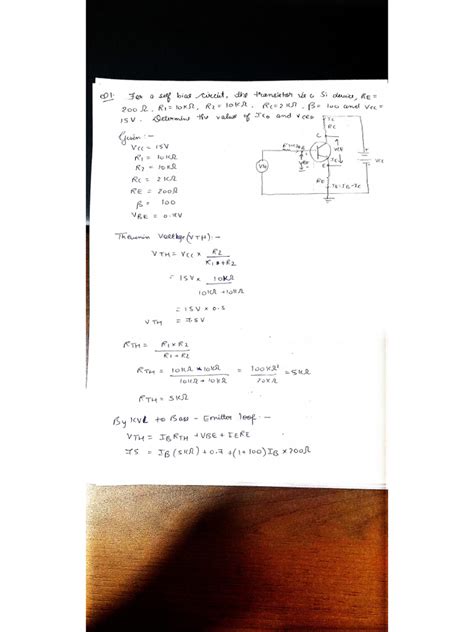 Q1. For a self bias circuit, the transistor is a Si device, RE =
200 Ω, R1 = 10KΩ, R2 = 10KΩ, RC = 2KΩ, β = 100 and VCC =
15V. Determine the value of ICQ and VCEQ
Given :-
VCC = 15V
R1 = 10KΩ
R2 = 10KΩ
RC = 2KΩ
RE = 200Ω
β = 100
IC
RC
C
VCE
E
RE
VCC
Thevenin Voltage (VTH) :-
VTH = VCC × R2
R1 + R2
= 15V × 10KΩ
10KΩ + 10KΩ
= 15V × 0.5
VTH = 7.5V
RTH = R1 × R2
R1 + R2
RTH = 10KΩ × 10KΩ = 100KΩ² = 5KΩ
10KΩ + 10KΩ 20KΩ
RTH = 5KΩ
By KVL to Base - Emitter loop :-
VTH = IB RTH + VBE + IERE
= IB (5KΩ) + 0.7 + (1+100) IB × 200Ω